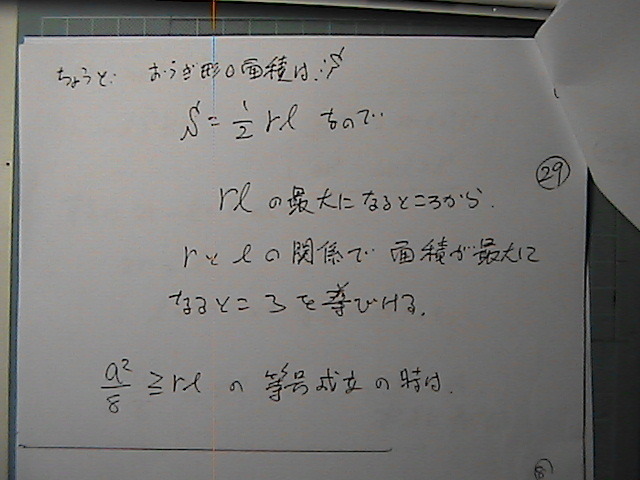 ちょうど おうぎ形の面積は、S
S = 1/2 rl なので
㉙
rl の最大になるところから、
rとlの関係で 面積が最大に
なるところを導びける。
a²/8 ≧ rl の 等号成立の時は、
⑧